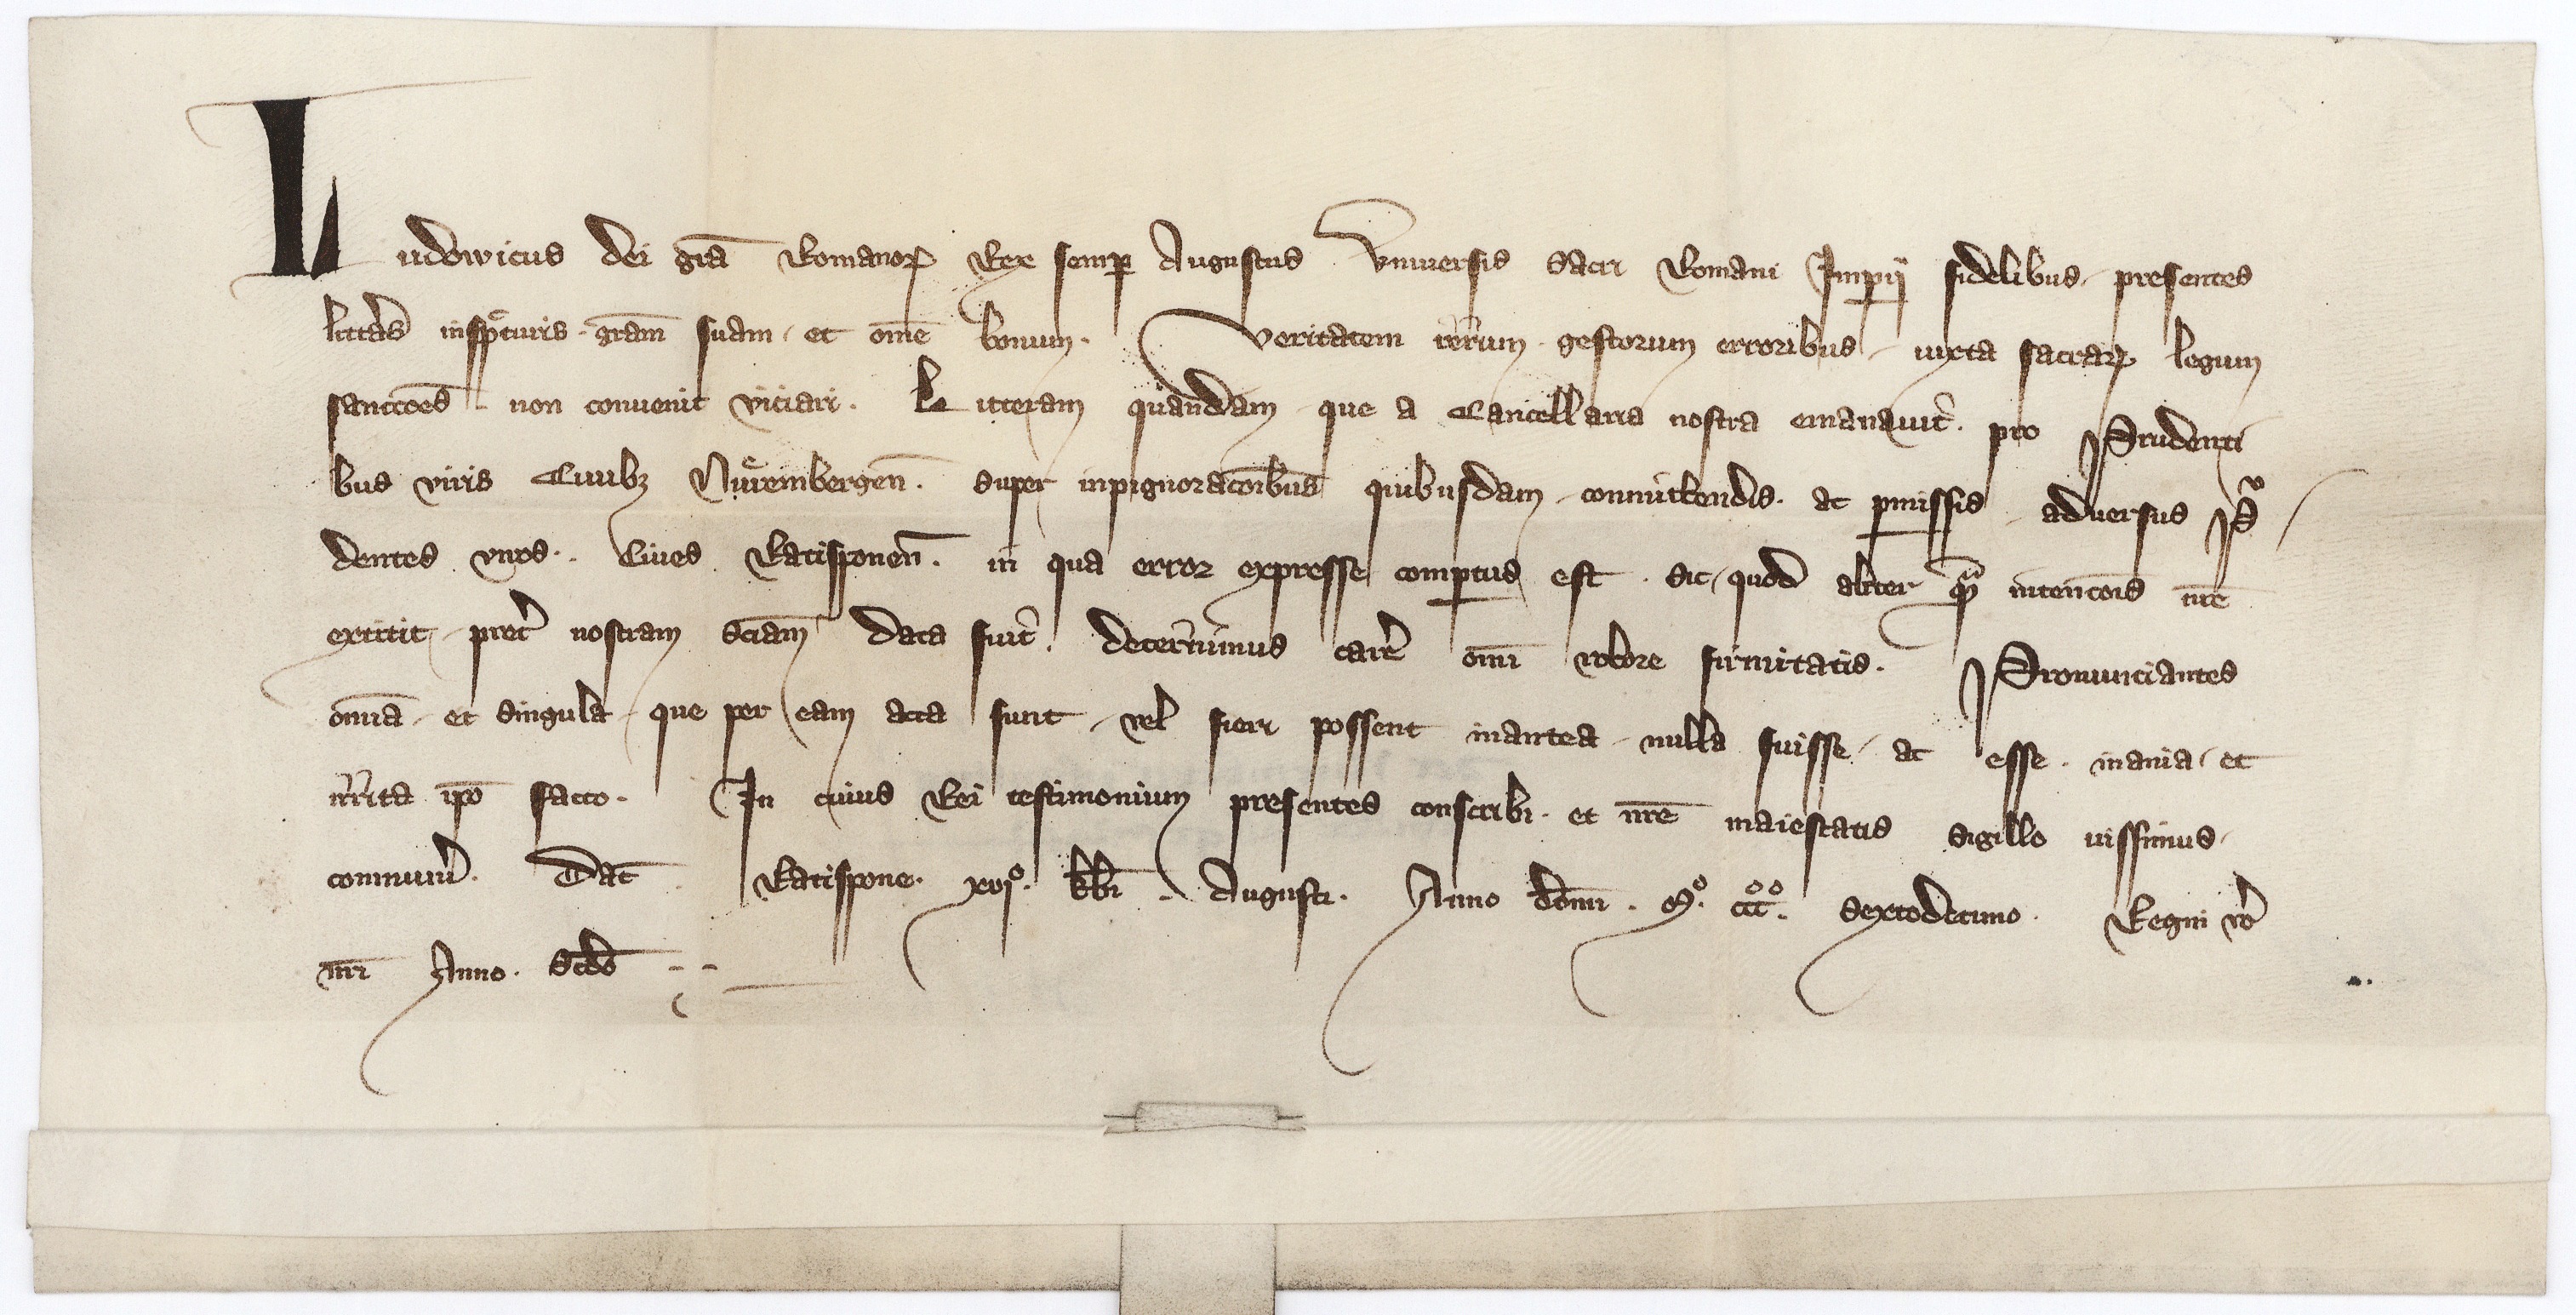 Ludowicus dei gr̄a Romanoꝝ Rex semꝑ Augustus Vniuersis Sacri Romani Imꝑij fidelibus presentes
litt̄as insp̄cturis gr̄am suam et om̄e bonum. Veritatem rerum gestorum erroribus iuxta sacraꝝ legum
sancc̄oes non conuenit viciari. Litteram quandam que a Cancellaria nostra emanauit̉. pro Prudenti
bus viris Ciuibꝫ Nu̇rembergen̄. super inpignorac̄oibus quibusdam conmittendis. ac ꝑmissis aduersus Pᵛ
dentes viros. Ciues Ratisponen̄. in qua error expresse comꝑtus est. sic quod alit̄er qᷓ intenc̄ois nr̄e
extitit pret̉ nostram sc̄iam data fuit̉. decernimus car̉e om̄i robore firmitatis. Pronunciantes
omnia et singula que per eam acta sunt vel fieri possent inantea nulla fuisse ac esse. inania et
irrita ip̄o facto. In cuius Rei testimonium presentes conscribi. et nr̄e maiestatis sigillo iussimus
conmunir̉. Dat̄. Ratispone. xviͦ. kl̄n. Augusti. Anno domī. Mͦ. cccͦͦ. Sextodecimo. Regni v̉o
nr̄i Anno. Sc̄do